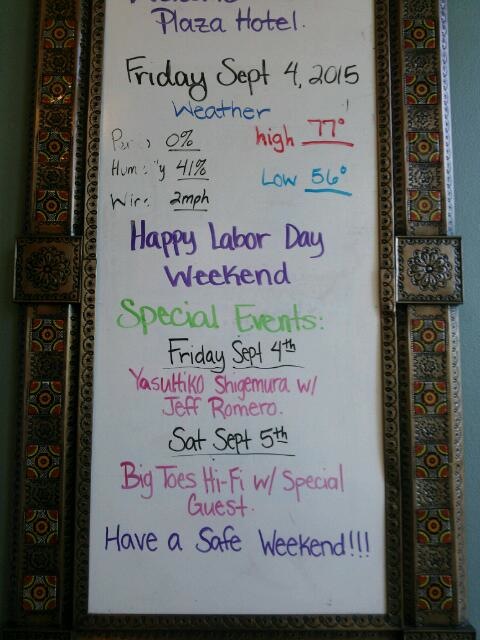 Plaza Hotel.
Friday Sept 4, 2015
Weather
0% high 77°
41% Low 56°
2mph
Happy Labor Day
Weekend
Special Events:
Friday Sept 4th
Yasuhiko Shigemura w/
Jeff Romero.
Sat Sept 5th
Big Toes Hi-Fi w/ Special
Guest.
Have a Safe Weekend!!!